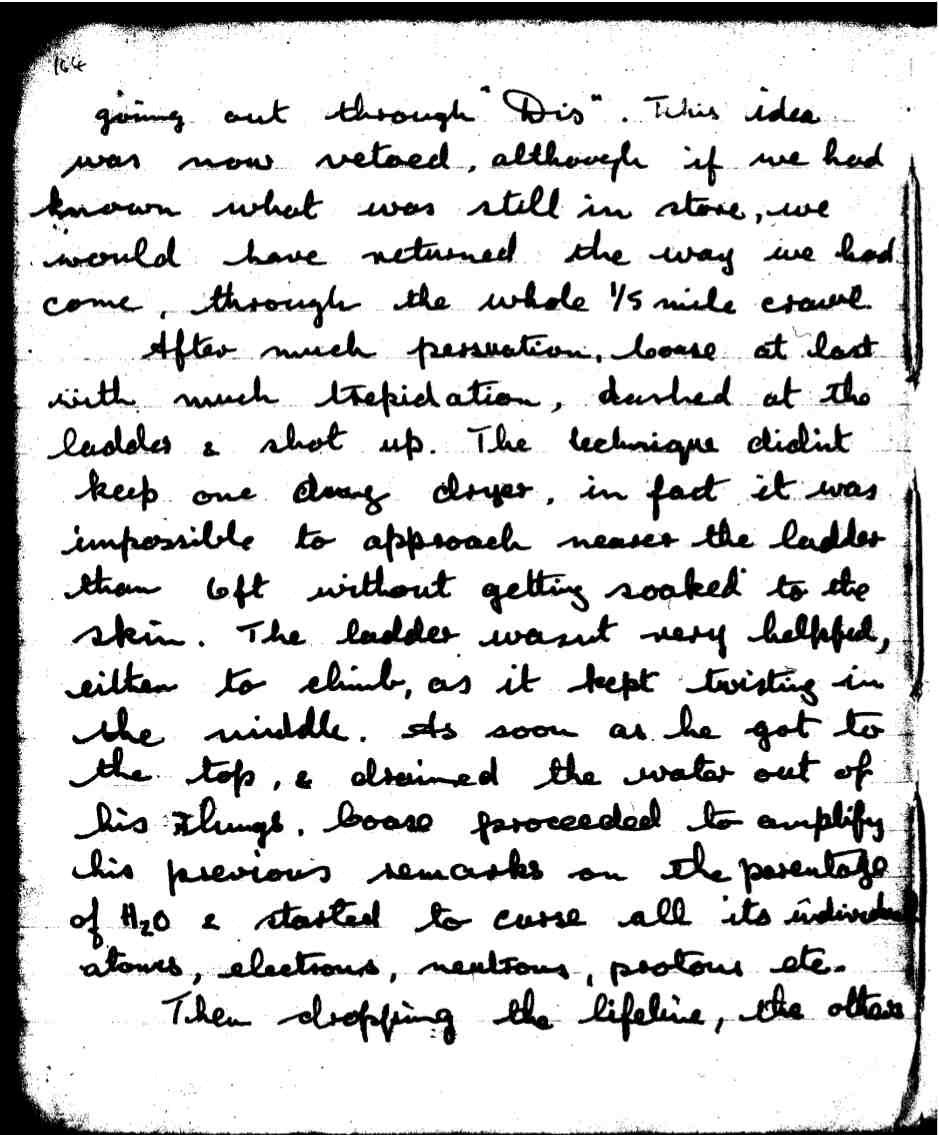 164
going out through "Dis". This idea
was now vetoed, although if we had
known what was still in store, we
would have returned the way we had
come, through the whole 1/5 mile crawl.
After much persuation, Coase at last
with much trepidation, dashed at the
ladder & shot up. The technique didint
keep one dryer, in fact it was
impossible to approach nearer the ladder
than 6ft without getting soaked to the
skin. The ladder wasnt very helpful,
either to climb, as it kept twisting in
the middle. As soon as he got to
the top, & drained the water out of
his lungs, Coase proceeded to amplify
his previous remarks on the parentage
of H₂O & started to curse all its individual
atoms, electrons, neutrons, protons etc.
Then dropping the lifeline, the others